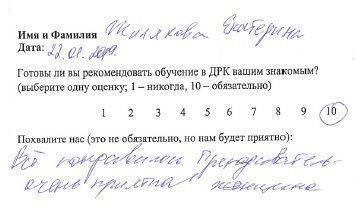 Имя и Фамилия Жиляkова Екатерина
Дата: 22.01.2019.
Готовы ли вы рекомендовать обучение в ДРК вашим знакомым?
(выберите одну оценку; 1 – никогда, 10 – обязательно)
1 2 3 4 5 6 7 8 9 10
Похвалите нас (это не обязательно, но нам будет приятно):
Всё понравилось Преподаватель-
очень приятная женщина